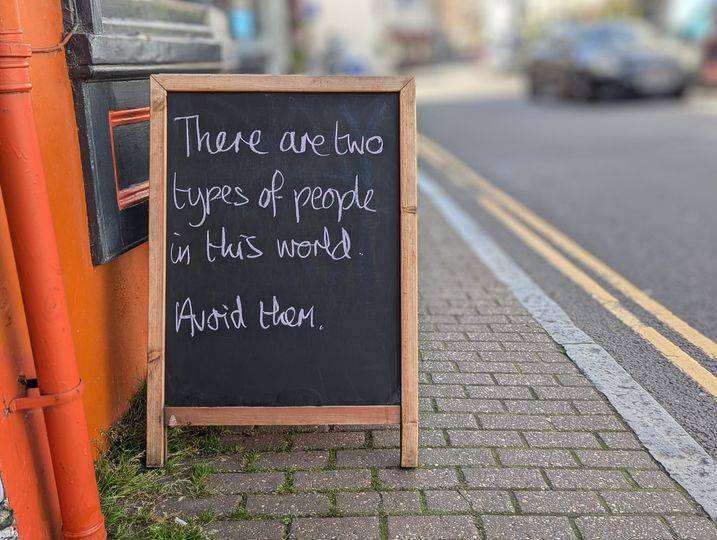 There are two
types of people
in this world.
Avoid them.